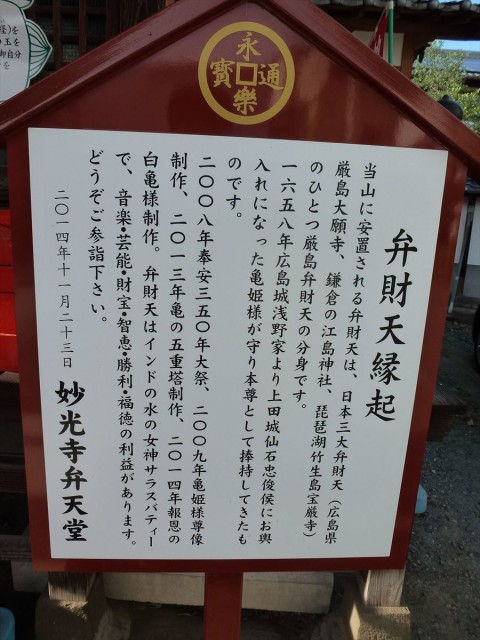 永樂通寶
弁財天縁起
当山に安置される弁財天は、日本三大弁財天（広島県
厳島大願寺、鎌倉の江島神社、琵琶湖竹生島宝厳寺）
のひとつ厳島弁財天の分身です。
一六五八年広島城浅野家より上田城仙石忠俊侯にお輿
入れになった亀姫様が守り本尊として捧持してきたも
のです。
二〇〇八年奉安三五〇年大祭、二〇〇九年亀姫様尊像
制作、二〇一三年亀の五重塔制作、二〇一四年報恩の
白亀様制作。弁財天はインドの水の女神サラスバティー
で、音楽・芸能・財宝・智恵・勝利・福徳の利益があります。
どうぞご参詣下さい。
二〇一四年十一月二十三日
妙光寺弁天堂